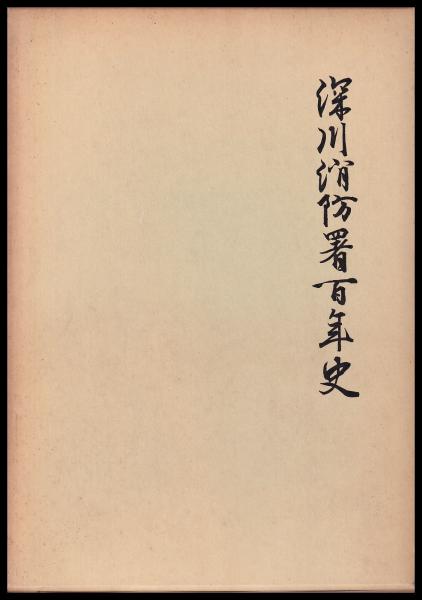 深川消防署百年史